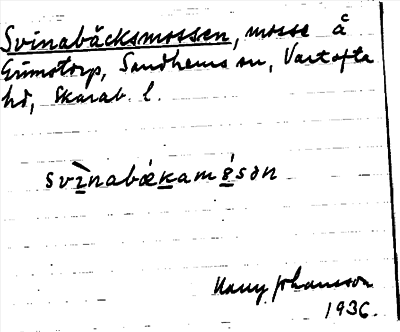 Svinabäcksmossen, mosse å
Grimstorp, Sandhems sn, Vartofta
hd, Skarab. l.
svìnabækamósən
Harry Johansson
1936.